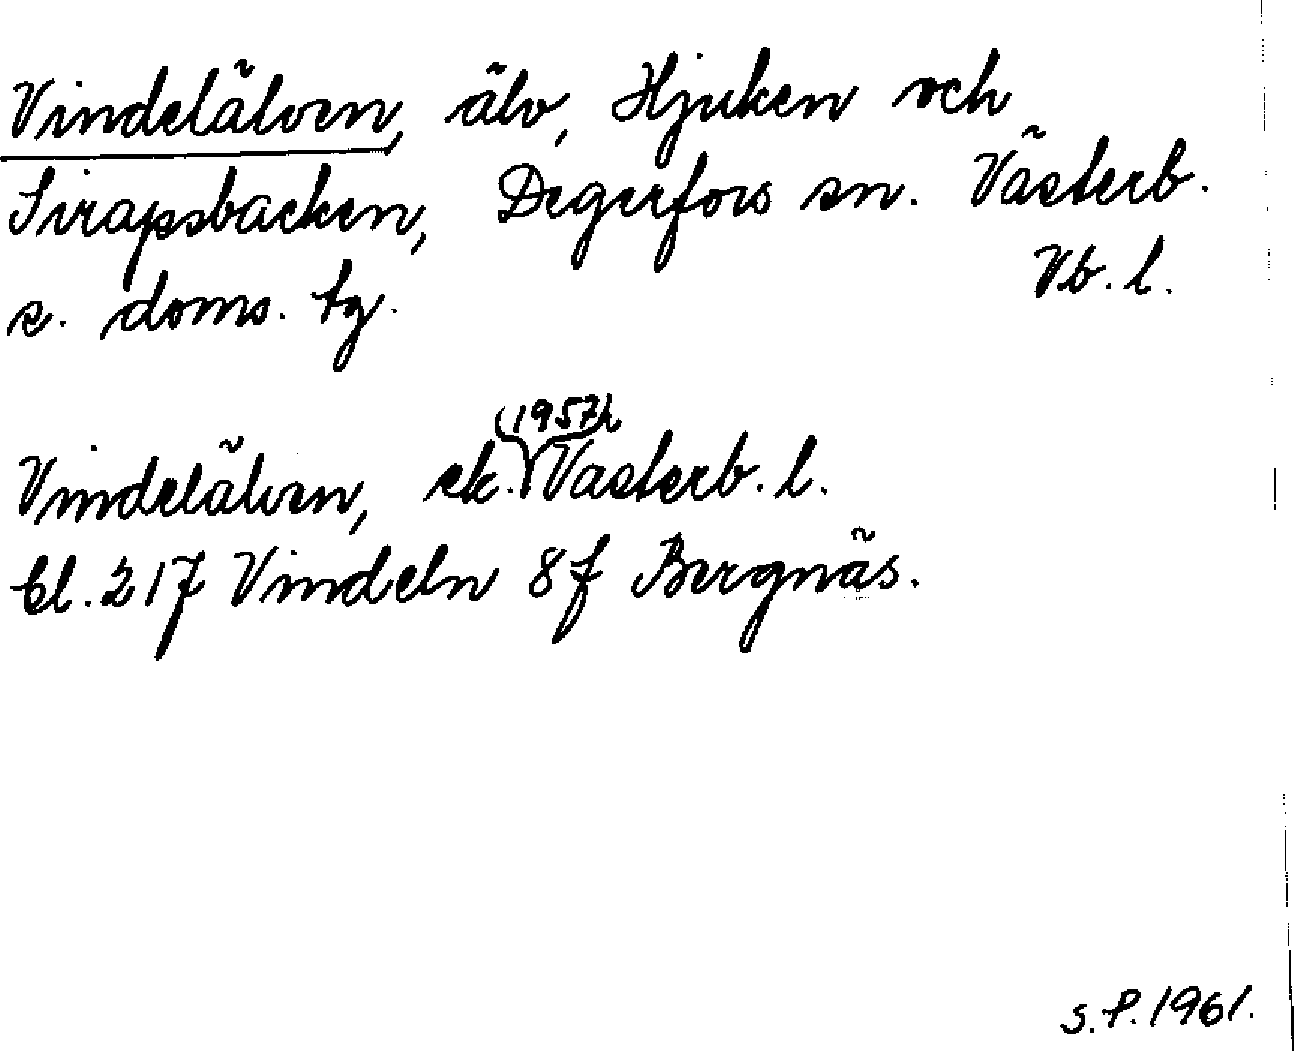 Vindelälven, älv, Hjuken och
Sirapsbacken, Degerfors sn. Västerb.
s. doms. tg. Vb. l.
(1957)
Vindelälven, ek. Västerb. l.
bl. 217 Vindeln 8f Bergnäs.
S.P. 1961.